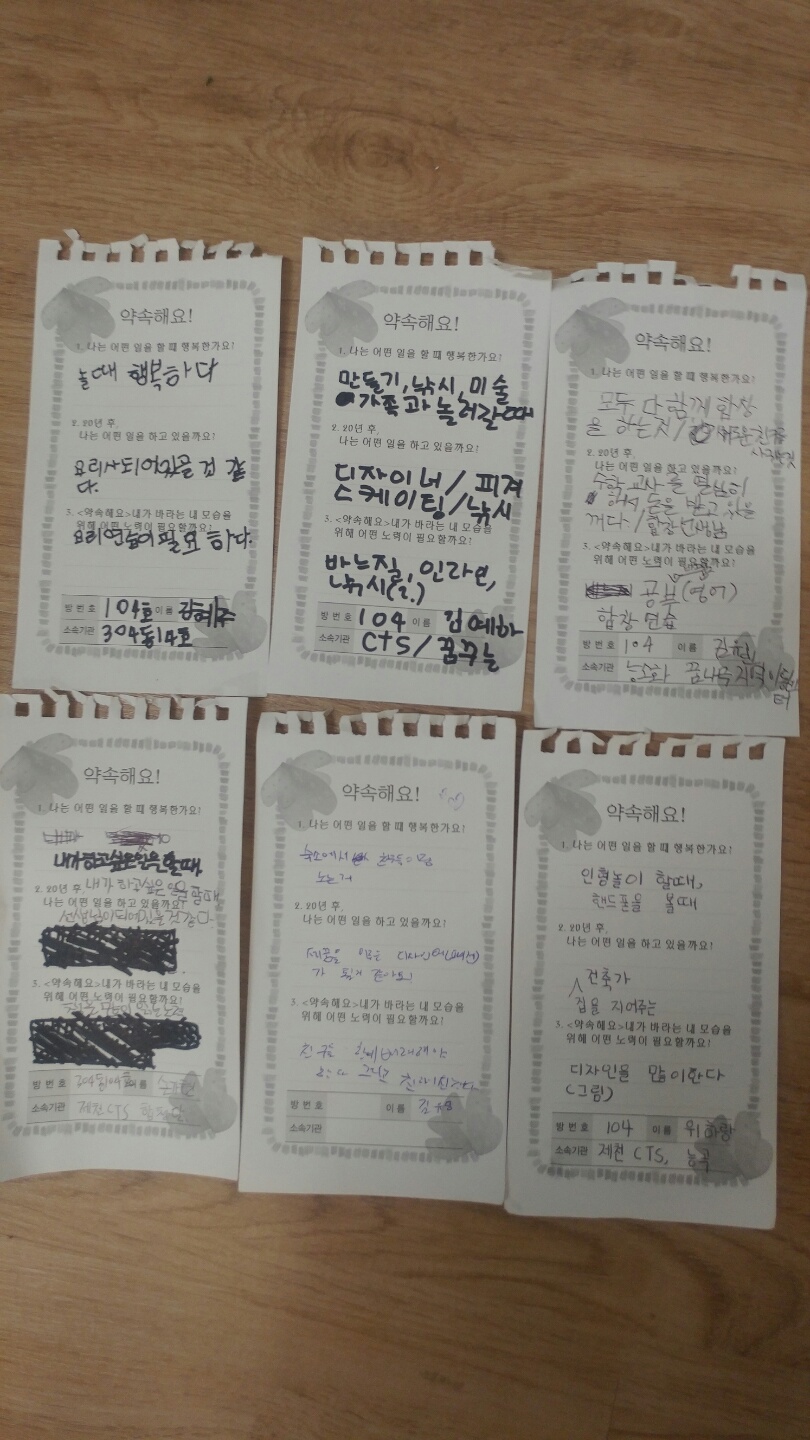 약속해요!
1. 나는 어떤 일을 할 때 행복한가요?
놀때 행복하다
2. 20년 후,
나는 어떤 일을 하고 있을까요?
요리사되어있을 것 같
다.
3. <약속해요>내가 바라는 내 모습을
위해 어떤 노력이 필요할까요?
요리연습이 필요 하다.
방 번 호 104호 이름 김혜주
소속기관 304동 14호
약속해요!
1. 나는 어떤 일을 할 때 행복한가요?
만들기, 낚시, 미술
가족과 놀러갈때
2. 20년 후,
나는 어떤 일을 하고 있을까요?
디자이너/ 피겨
스케이팅/낚시
3. <약속해요>내가 바라는 내 모습을
위해 어떤 노력이 필요할까요?
바느질, 인라인,
낚시
방 번 호 104 이름 김예하
소속기관 CTS/꿈꾸는
약속해요!
1. 나는 어떤 일을 할 때 행복한가요?
모두 다 함께 합창
을 하는것/ 새로운 친구
2. 20년 후,
나는 어떤 일을 하고 있을까요?
수학교사를 열심히
해서, 돈을 받고 있을
꺼다/합창선생님
3. <약속해요>내가 바라는 내 모습을
위해 어떤 노력이 필요할까요?
공부(영어)
합창 연습
방 번 호 104 이 름
소속기관
약속해요!
1. 나는 어떤 일을 할 때 행복한가요?
내가 하고싶은 일을 할때
2. 20년 후, 내가 하고싶은 일을 할때
나는 어떤 일을 하고 있을까요?
선생님이 되어있을것 같다.
3. <약속해요>내가 바라는 내 모습을
위해 어떤 노력이 필요할까요?
방 번 호 304동 104호 이름
소속기관 제천 CTS
약속해요!
1. 나는 어떤 일을 할 때 행복한가요?
숙소에서 친구들이랑
노는거
2. 20년 후,
나는 어떤 일을 하고 있을까요?
3. <약속해요>내가 바라는 내 모습을
위해 어떤 노력이 필요할까요?
방 번 호 이름 김
소속기관
약속해요!
1. 나는 어떤 일을 할 때 행복한가요?
인형놀이 할때,
핸드폰을 볼때
2. 20년 후,
나는 어떤 일을 하고 있을까요?
건축가
집을 지어주는
3. <약속해요>내가 바라는 내 모습을
위해 어떤 노력이 필요할까요?
디자인을 많이한다
(그림)
방 번 호 104 이름 위하랑
소속기관 제천 CTS,